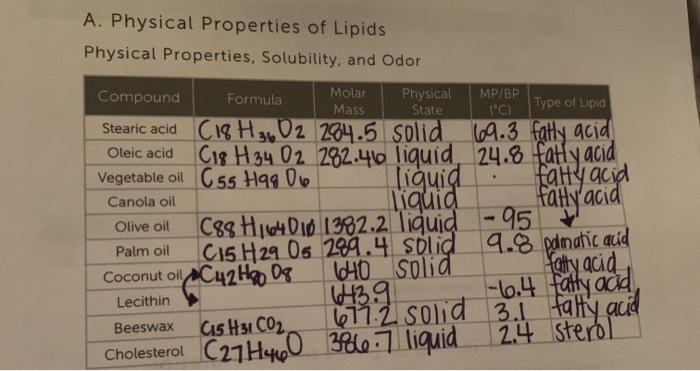 A. Physical Properties of Lipids
Physical Properties, Solubility, and Odor
Compound Formula Molar Mass Physical State MP/BP (°C) Type of Lipid
Stearic acid C18 H36 O2 284.5 solid 69.3 fatty acid
Oleic acid C18 H34 O2 282.46 liquid 24.8 fatty acid
Vegetable oil C55 H98 O6 liquid fatty acid
Canola oil liquid fatty acid
Olive oil C88 H164 O10 1382.2 liquid -95
Palm oil C15 H29 O5 289.4 solid 9.8 palmatic acid
Coconut oil C42 H80 O8 640 solid fatty acid
Lecithin 643.9 -6.4 fatty acid
Beeswax C15 H31 CO2 677.2 solid 3.1 fatty acid
Cholesterol C27 H46O 386.7 liquid 2.4 sterol